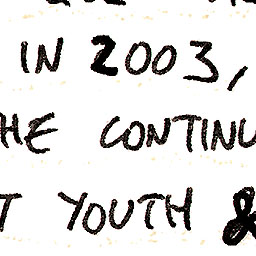 IN 2003,
HE CONTINU
T YOUTH &